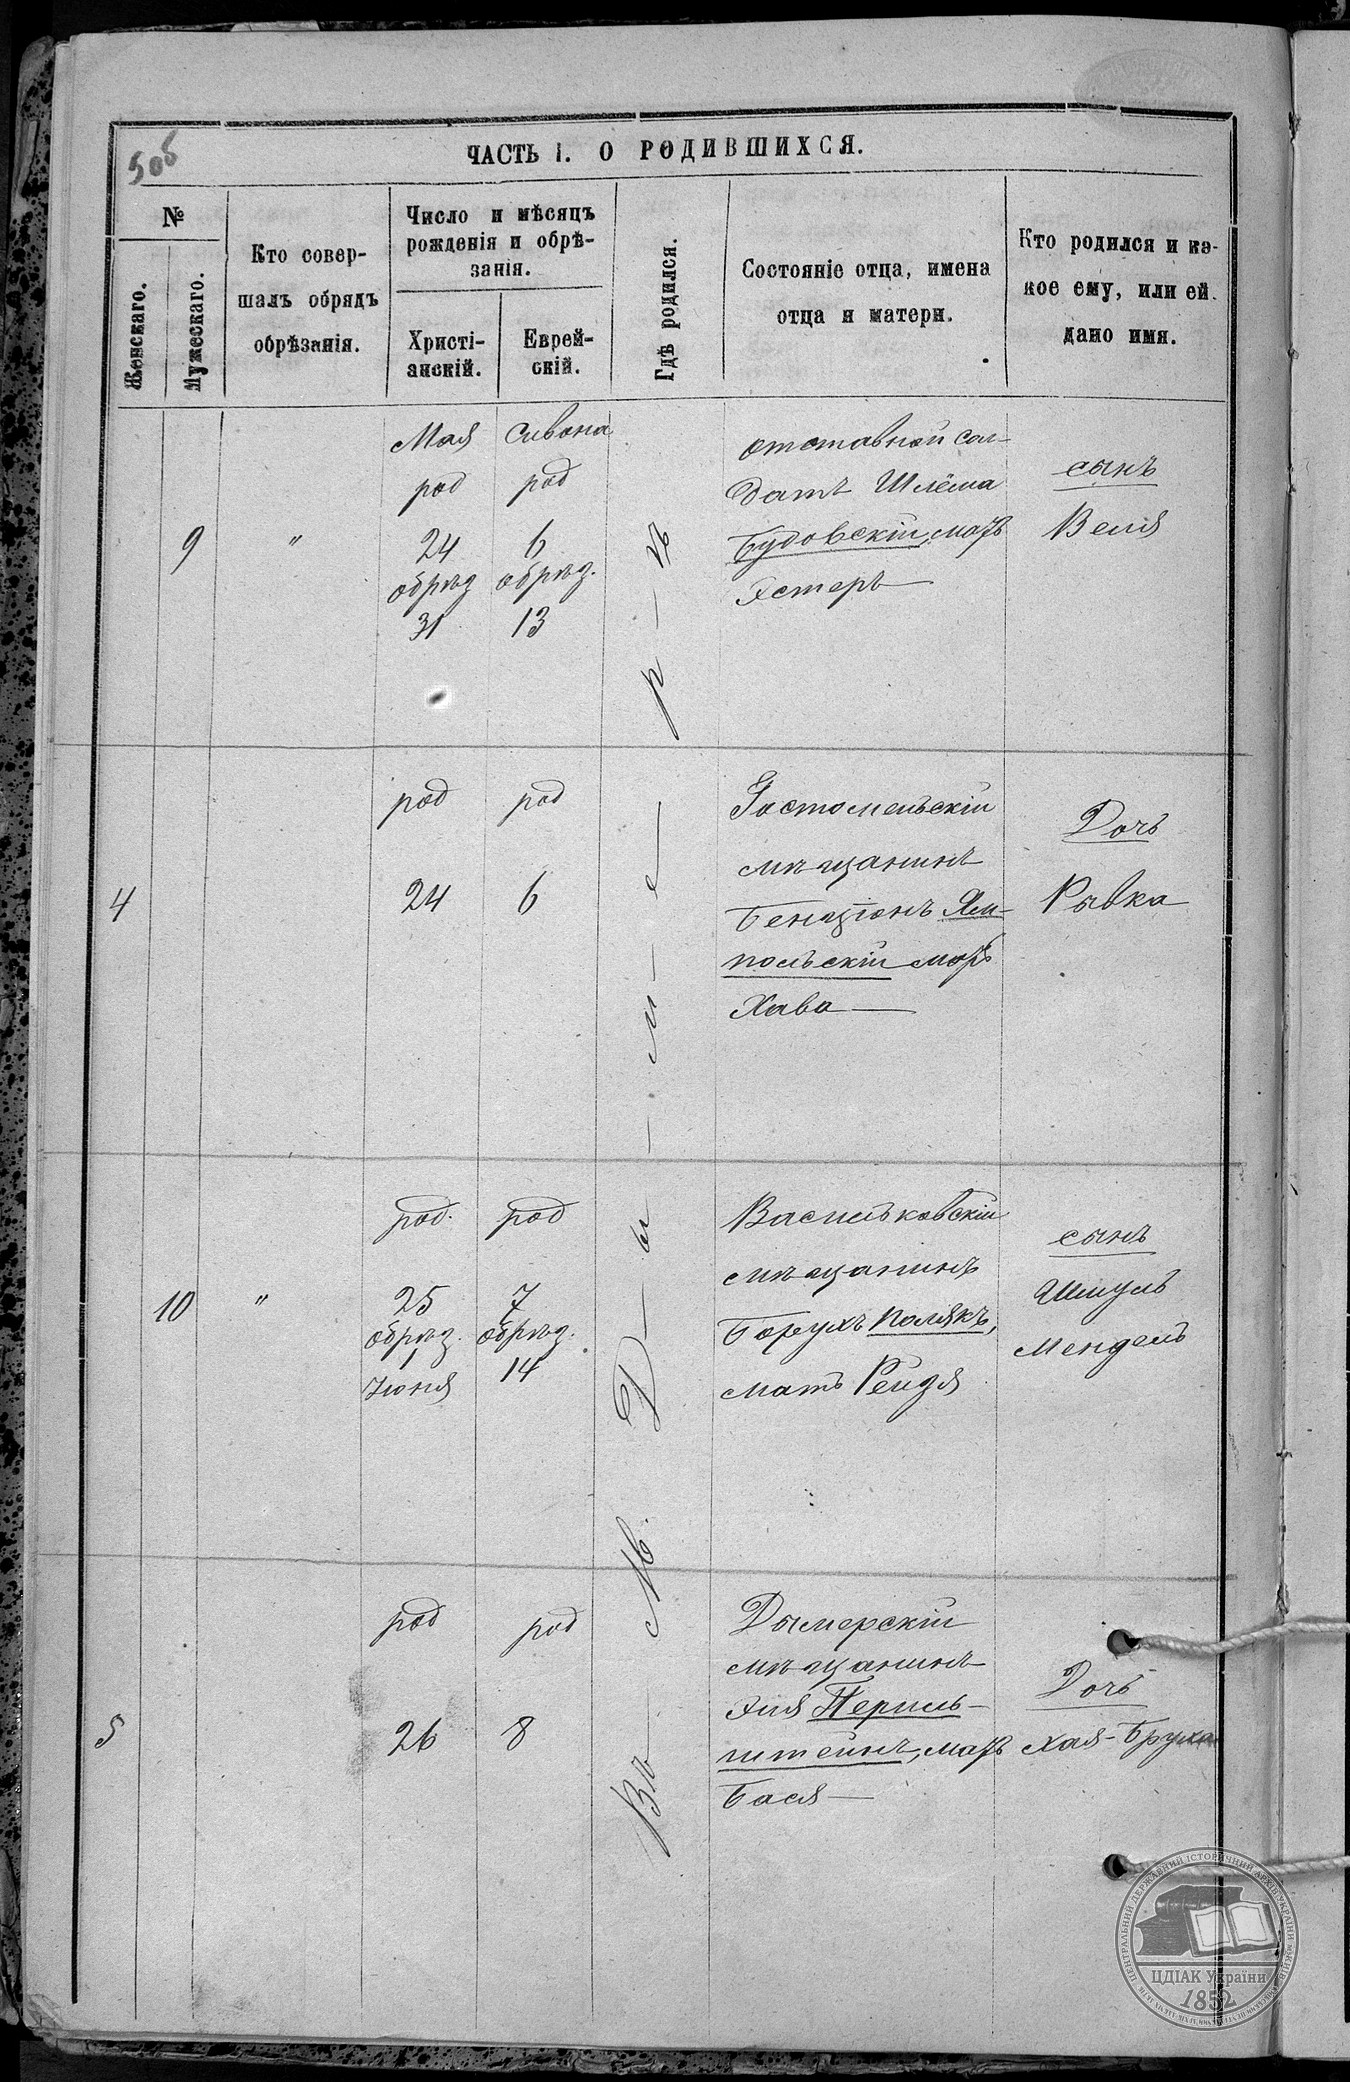 5об
ЧАСТЬ I. О РОДИВШИХСЯ.
№
Женскаго.
Мужескаго.
Кто совер-
шалъ обрядъ
обрѣзанія.
Число и мѣсяцъ
рожденія и обрѣ-
занія.
Христі-
анскій.
Еврей-
скій.
Гдѣ родился.
Состояніе отца, имена
отца и матери.
Кто родился и ка-
кое ему, или ей
дано имя.
Въ М. Д-ы-м-е-р-ѣ
9
"
Мая
род
24
обрѣз
31
Сивона
род
6
обрѣз.
13
отставной сол-
датъ Шлёма
Будовскій, мать
Эстеръ —
сынъ
Веля
4
род
24
род
6
Гостомельскій
мѣщанинъ
Бенціонъ Ям-
польскій мать
Хава —
Дочь
Рывка
10
"
род.
25
обрѣз.
1
Июня
род
7
обрѣз.
14
Васильковскій
мѣщанинъ
Борухъ Полякъ,
мать Рейзя
сынъ
Шмуль
Мендель
5
род
26
род
8
Дымерскій
мѣщанинъ
Эля Перль-
штейнъ, мать
Бася —
Дочь
Хая-Бруха
ЦЕНТРАЛЬНИЙ ДЕРЖАВНИЙ ІСТОРИЧНИЙ АРХІВ УКРАЇНИ
ЦДІАК України
1852